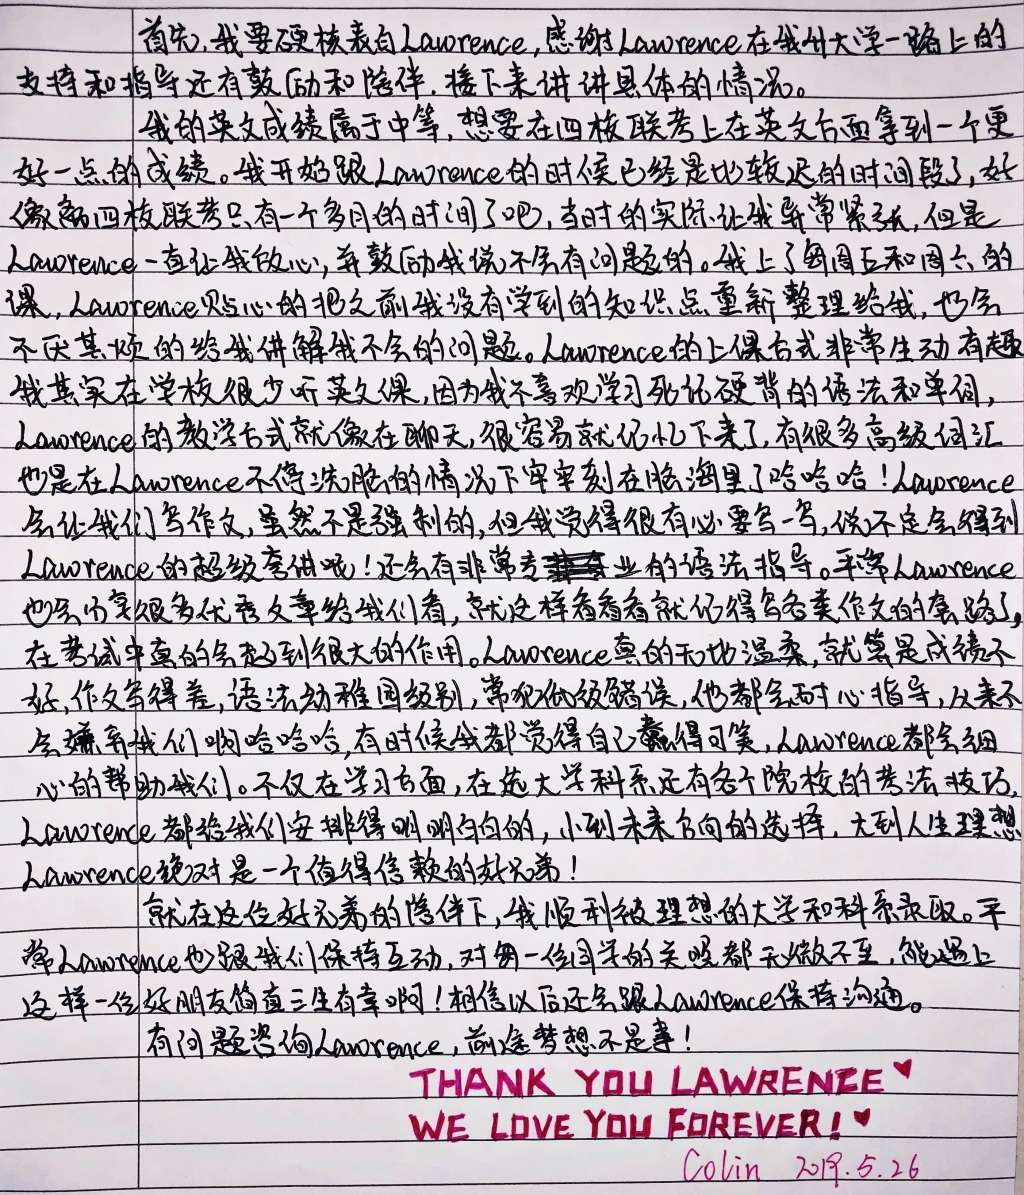 首先,我要硬核表白Lawrence,感谢Lawrence在我升大学一路上的
支持和指导还有鼓励和陪伴.接下来讲讲具体的情况。
我的英文成绩属于中等,想要在四校联考上在英文方面拿到一个更
好一点的成绩。我开始跟Lawrence的时候已经是比较迟的时间段了,好
像离四校联考只有一个多月的时间了吧,当时的实际让我异常紧张,但是
Lawrence一直让我放心,并鼓励我说不会有问题的。我上了每周五和周六的
课,Lawrence贴心的把之前我没有学到的知识点重新整理给我,也会
不厌其烦的给我讲解我不会的问题。Lawrence的上课方式非常生动有趣
我其实在学校很少听英文课,因为我不喜欢学习死记硬背的语法和单词,
Lawrence的教学方式就像在聊天,很容易就记忆下来了,有很多高级词汇
也是在Lawrence不停洗脑的情况下牢牢刻在脑海里了哈哈哈!Lawrence
会让我们写作文,虽然不是强制的,但我觉得很有必要写一写,说不定会得到
Lawrence的超级夸讲呢!还会有非常专业的语法指导。平常Lawrence
也会分享很多优秀文章给我们看,就这样看看看就记得写各类作文的套路了,
在考试中真的会起到很大的作用。Lawrence真的无地温柔,就算是成绩不
好,作文写得差,语法幼稚园级别,常犯低级错误,他都会耐心指导,从来不
会嫌弃我们啊哈哈哈,有时候我都觉得自己蠢得可笑,Lawrence都会细
心的帮助我们。不仅在学习方面,在选大学科系还有各个院校的考法技巧,
Lawrence都给我们安排得明明白白的,小到未来方向的选择,大到人生理想
Lawrence绝对是一个值得信赖的好兄弟!
就在这位好兄弟的陪伴下,我顺利被理想的大学和科系录取。平
常Lawrence也跟我们保持互动,对每一位同学的关照都无微不至,能遇上
这样一位好朋友简直三生有幸啊!相信以后还会跟Lawrence保持沟通。
有问题咨询Lawrence,前途梦想不是事!
THANK YOU LAWRENCE♥
WE LOVE YOU FOREVER!♥
Colin 2019.5.26